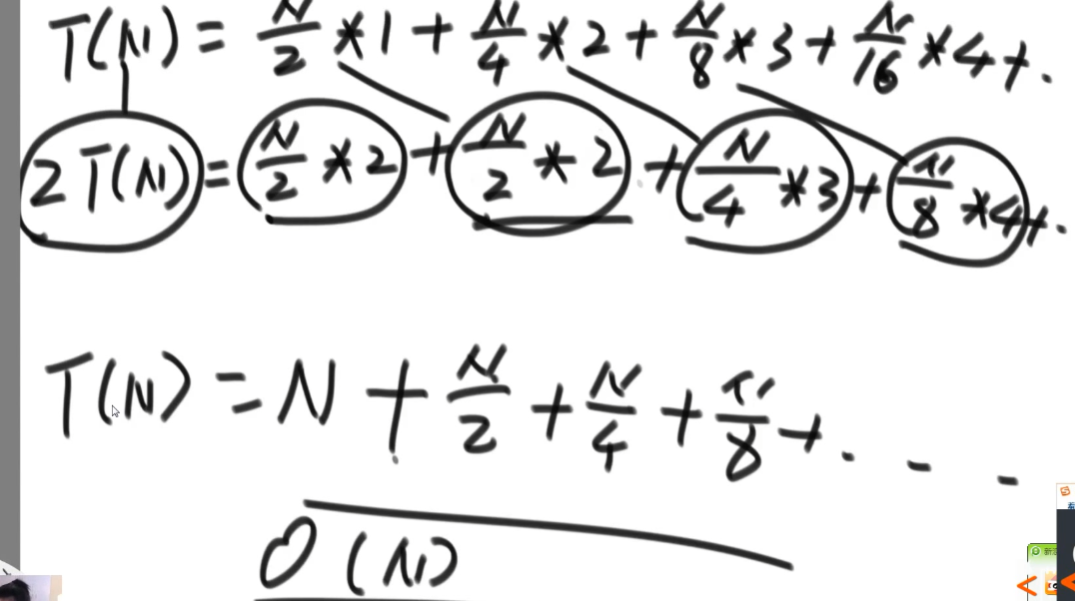 T(N) = N/2 * 1 + N/4 * 2 + N/8 * 3 + N/16 * 4 + .
2 T(N) = N/2 * 2 + N/2 * 2 + N/4 * 3 + N/8 * 4 + .
T(N) = N + N/2 + N/4 + N/8 + . - -
O(N)